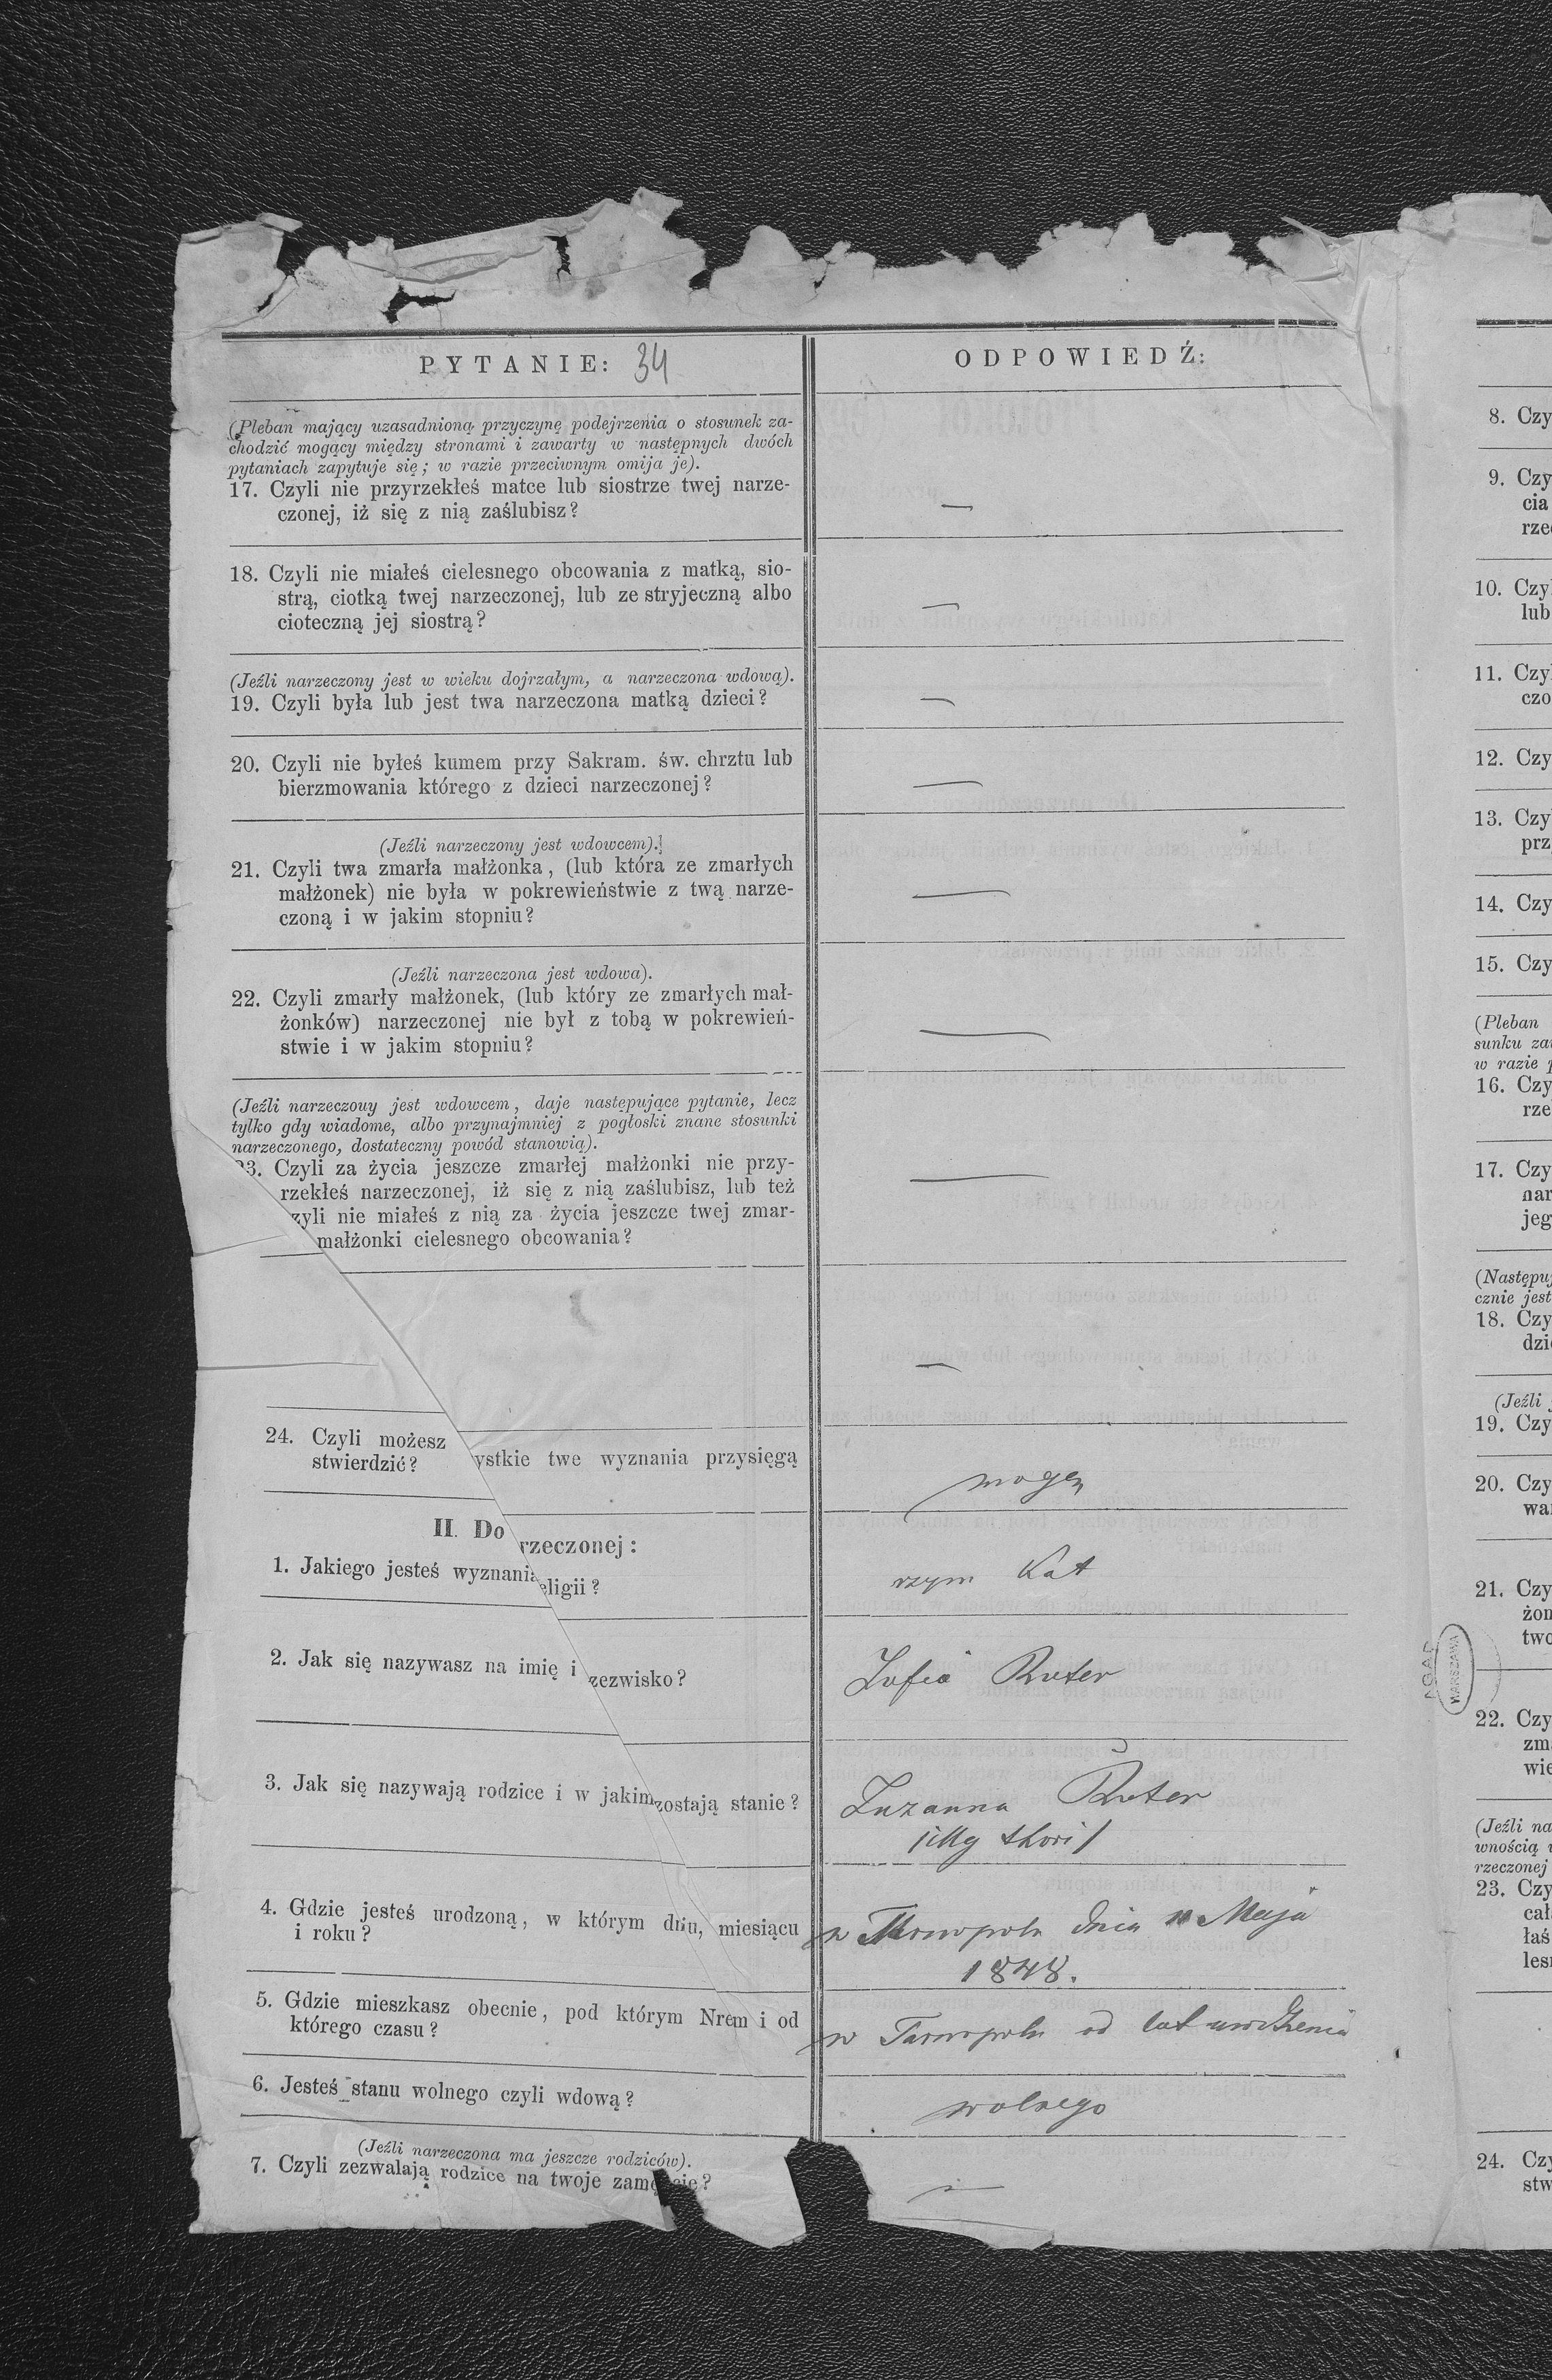 PYTANIE: 34
ODPOWIEDŹ:
(Pleban mający uzasadnioną przyczynę podejrzenia o stosunek za-
chodzić mogący między stronami i zawarty w następnych dwóch
pytaniach zapytuje się; w razie przeciwnym omija je).
17. Czyli nie przyrzekłeś matce lub siostrze twej narze-
czonej, iż się z nią zaślubisz?
—
18. Czyli nie miałeś cielesnego obcowania z matką, sio-
strą, ciotką twej narzeczonej, lub ze stryjeczną albo
cioteczną jej siostrą?
—
(Jeźli narzeczony jest w wieku dojrzałym, a narzeczona wdową).
19. Czyli była lub jest twa narzeczona matką dzieci?
—
20. Czyli nie byłeś kumem przy Sakram. św. chrztu lub
bierzmowania którego z dzieci narzeczonej?
—
(Jeźli narzeczony jest wdowcem).
21. Czyli twa zmarła małżonka, (lub która ze zmarłych
małżonek) nie była w pokrewieństwie z twą narze-
czoną i w jakim stopniu?
—
(Jeźli narzeczona jest wdowa).
22. Czyli zmarły małżonek, (lub który ze zmarłych mał-
żonków) narzeczonej nie był z tobą w pokrewień-
stwie i w jakim stopniu?
—
(Jeźli narzeczouy jest wdowcem, daje następujące pytanie, lecz
tylko gdy wiadome, albo przynajmniej z pogłoski znane stosunki
narzeczonego, dostateczny powód stanowią).
23. Czyli za życia jeszcze zmarłej małżonki nie przy-
rzekłeś narzeczonej, iż się z nią zaślubisz, lub też
zyli nie miałeś z nią za życia jeszcze twej zmar-
małżonki cielesnego obcowania?
—
—
24. Czyli możesz ystkie twe wyznania przysięgą
stwierdzić?
mogę
II. Do rzeczonej:
1. Jakiego jesteś wyznania eligii?
rzym Kat
2. Jak się nazywasz na imię i zezwisko?
Zofia Ruter
3. Jak się nazywają rodzice i w jakim zostają stanie?
Zuzanna Ruter
4. Gdzie jesteś urodzoną, w którym dniu, miesiącu
i roku?
w Tarnopolu dnia 11 Maja
1848.
5. Gdzie mieszkasz obecnie, pod którym Nrem i od
którego czasu?
w Tarnopolu od lat urodzenia
6. Jesteś stanu wolnego czyli wdową?
wolnego
(Jeźli narzeczona ma jeszcze rodziców).
7. Czyli zezwalają rodzice na twoje zamęście?
8. Czy
9. Czy
cia
rze
10. Czy
lub
11. Czy
czo
12. Czy
13. Czy
prz
14. Czy
15. Czy
(Pleban
sunku za
w razie
16. Czy
rze
17. Czy
nar
jeg
(Następu
cznie jest
18. Czy
dzi
(Jeźli
19. Czy
20. Czy
wa
21. Czy
żon
two
AGAD
WARSZAWA
22. Czy
zm
wie
(Jeźli na
wnością
rzeczonej
23. Czy
cał
łaś
les
24. Czy
stw